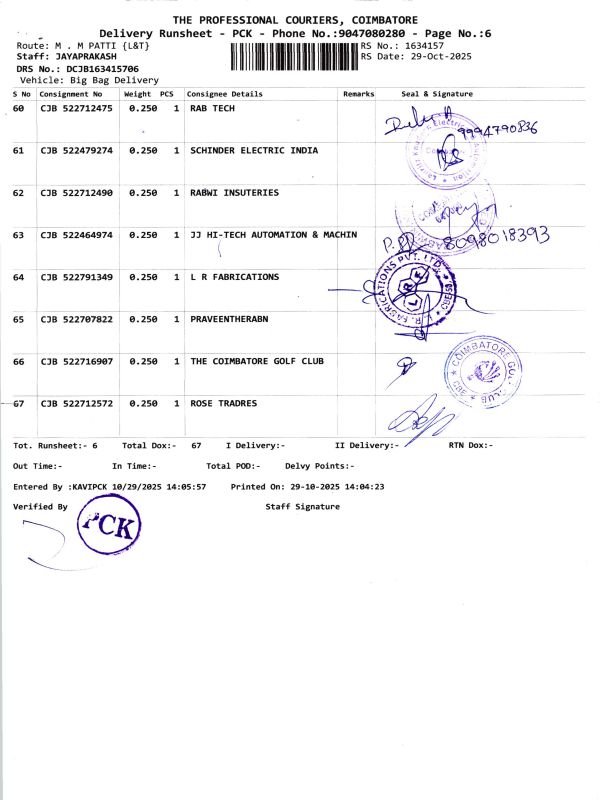 THE PROFESSIONAL COURIERS, COIMBATORE
Delivery Runsheet - PCK - Phone No.:9047080280 - Page No.:6
Route: M . M PATTI {L&T} RS No.: 1634157
Staff: JAYAPRAKASH RS Date: 29-Oct-2025
DRS No.: DCJB163415706
Vehicle: Big Bag Delivery
S No Consignment No Weight PCS Consignee Details Remarks Seal & Signature
60 CJB 522712475 0.250 1 RAB TECH
9994790836
61 CJB 522479274 0.250 1 SCHINDER ELECTRIC INDIA
62 CJB 522712490 0.250 1 RABWI INSUTERIES
63 CJB 522464974 0.250 1 JJ HI-TECH AUTOMATION & MACHIN
8098018393
64 CJB 522791349 0.250 1 L R FABRICATIONS
L.R. FABRICATIONS PVT. LTD
LRF
65 CJB 522707822 0.250 1 PRAVEENTHERABN
66 CJB 522716907 0.250 1 THE COIMBATORE GOLF CLUB
COIMBATORE GOLF CLUB
CBE
67 CJB 522712572 0.250 1 ROSE TRADRES
Tot. Runsheet:- 6 Total Dox:- 67 I Delivery:- II Delivery:- RTN Dox:-
Out Time:- In Time:- Total POD:- Delvy Points:-
Entered By :KAVIPCK 10/29/2025 14:05:57 Printed On: 29-10-2025 14:04:23
Verified By Staff Signature
PCK